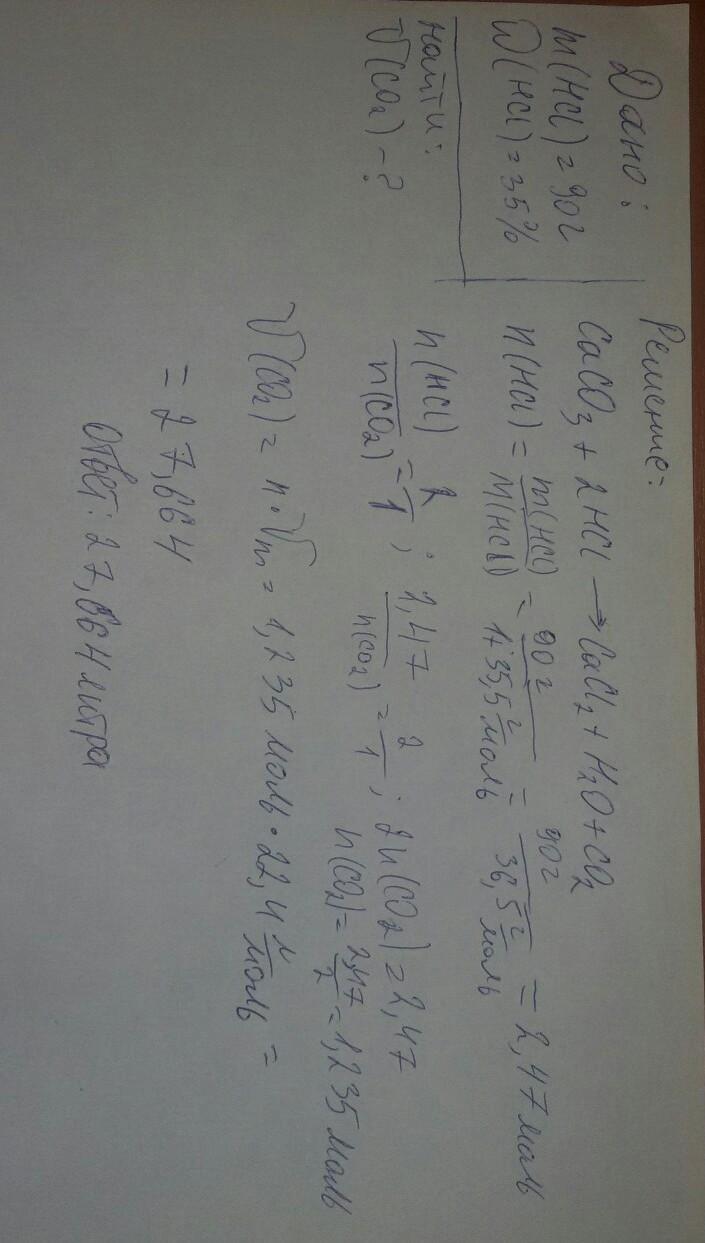 Дано:
m(HCl) = 90г
W(HCl) = 35%
найти:
V(CO2) - ?
Решение:
CaCO3 + 2HCl → CaCl2 + H2O + CO2
n(HCl) = m(HCl) / M(HCl) = 90г / 1+35,5 г/моль = 90г / 36,5 г/моль = 2,47 моль
n(HCl) / n(CO2) = 2/1 ; 1,47 / n(CO2) = 2/1 ; 2n(CO2) = 2,47
n(CO2) = 2,47 / 2 = 1,235 моль
V(CO2) = n · Vm = 1,235 моль · 22,4 л/моль =
= 27,664
Ответ: 27,664 литра